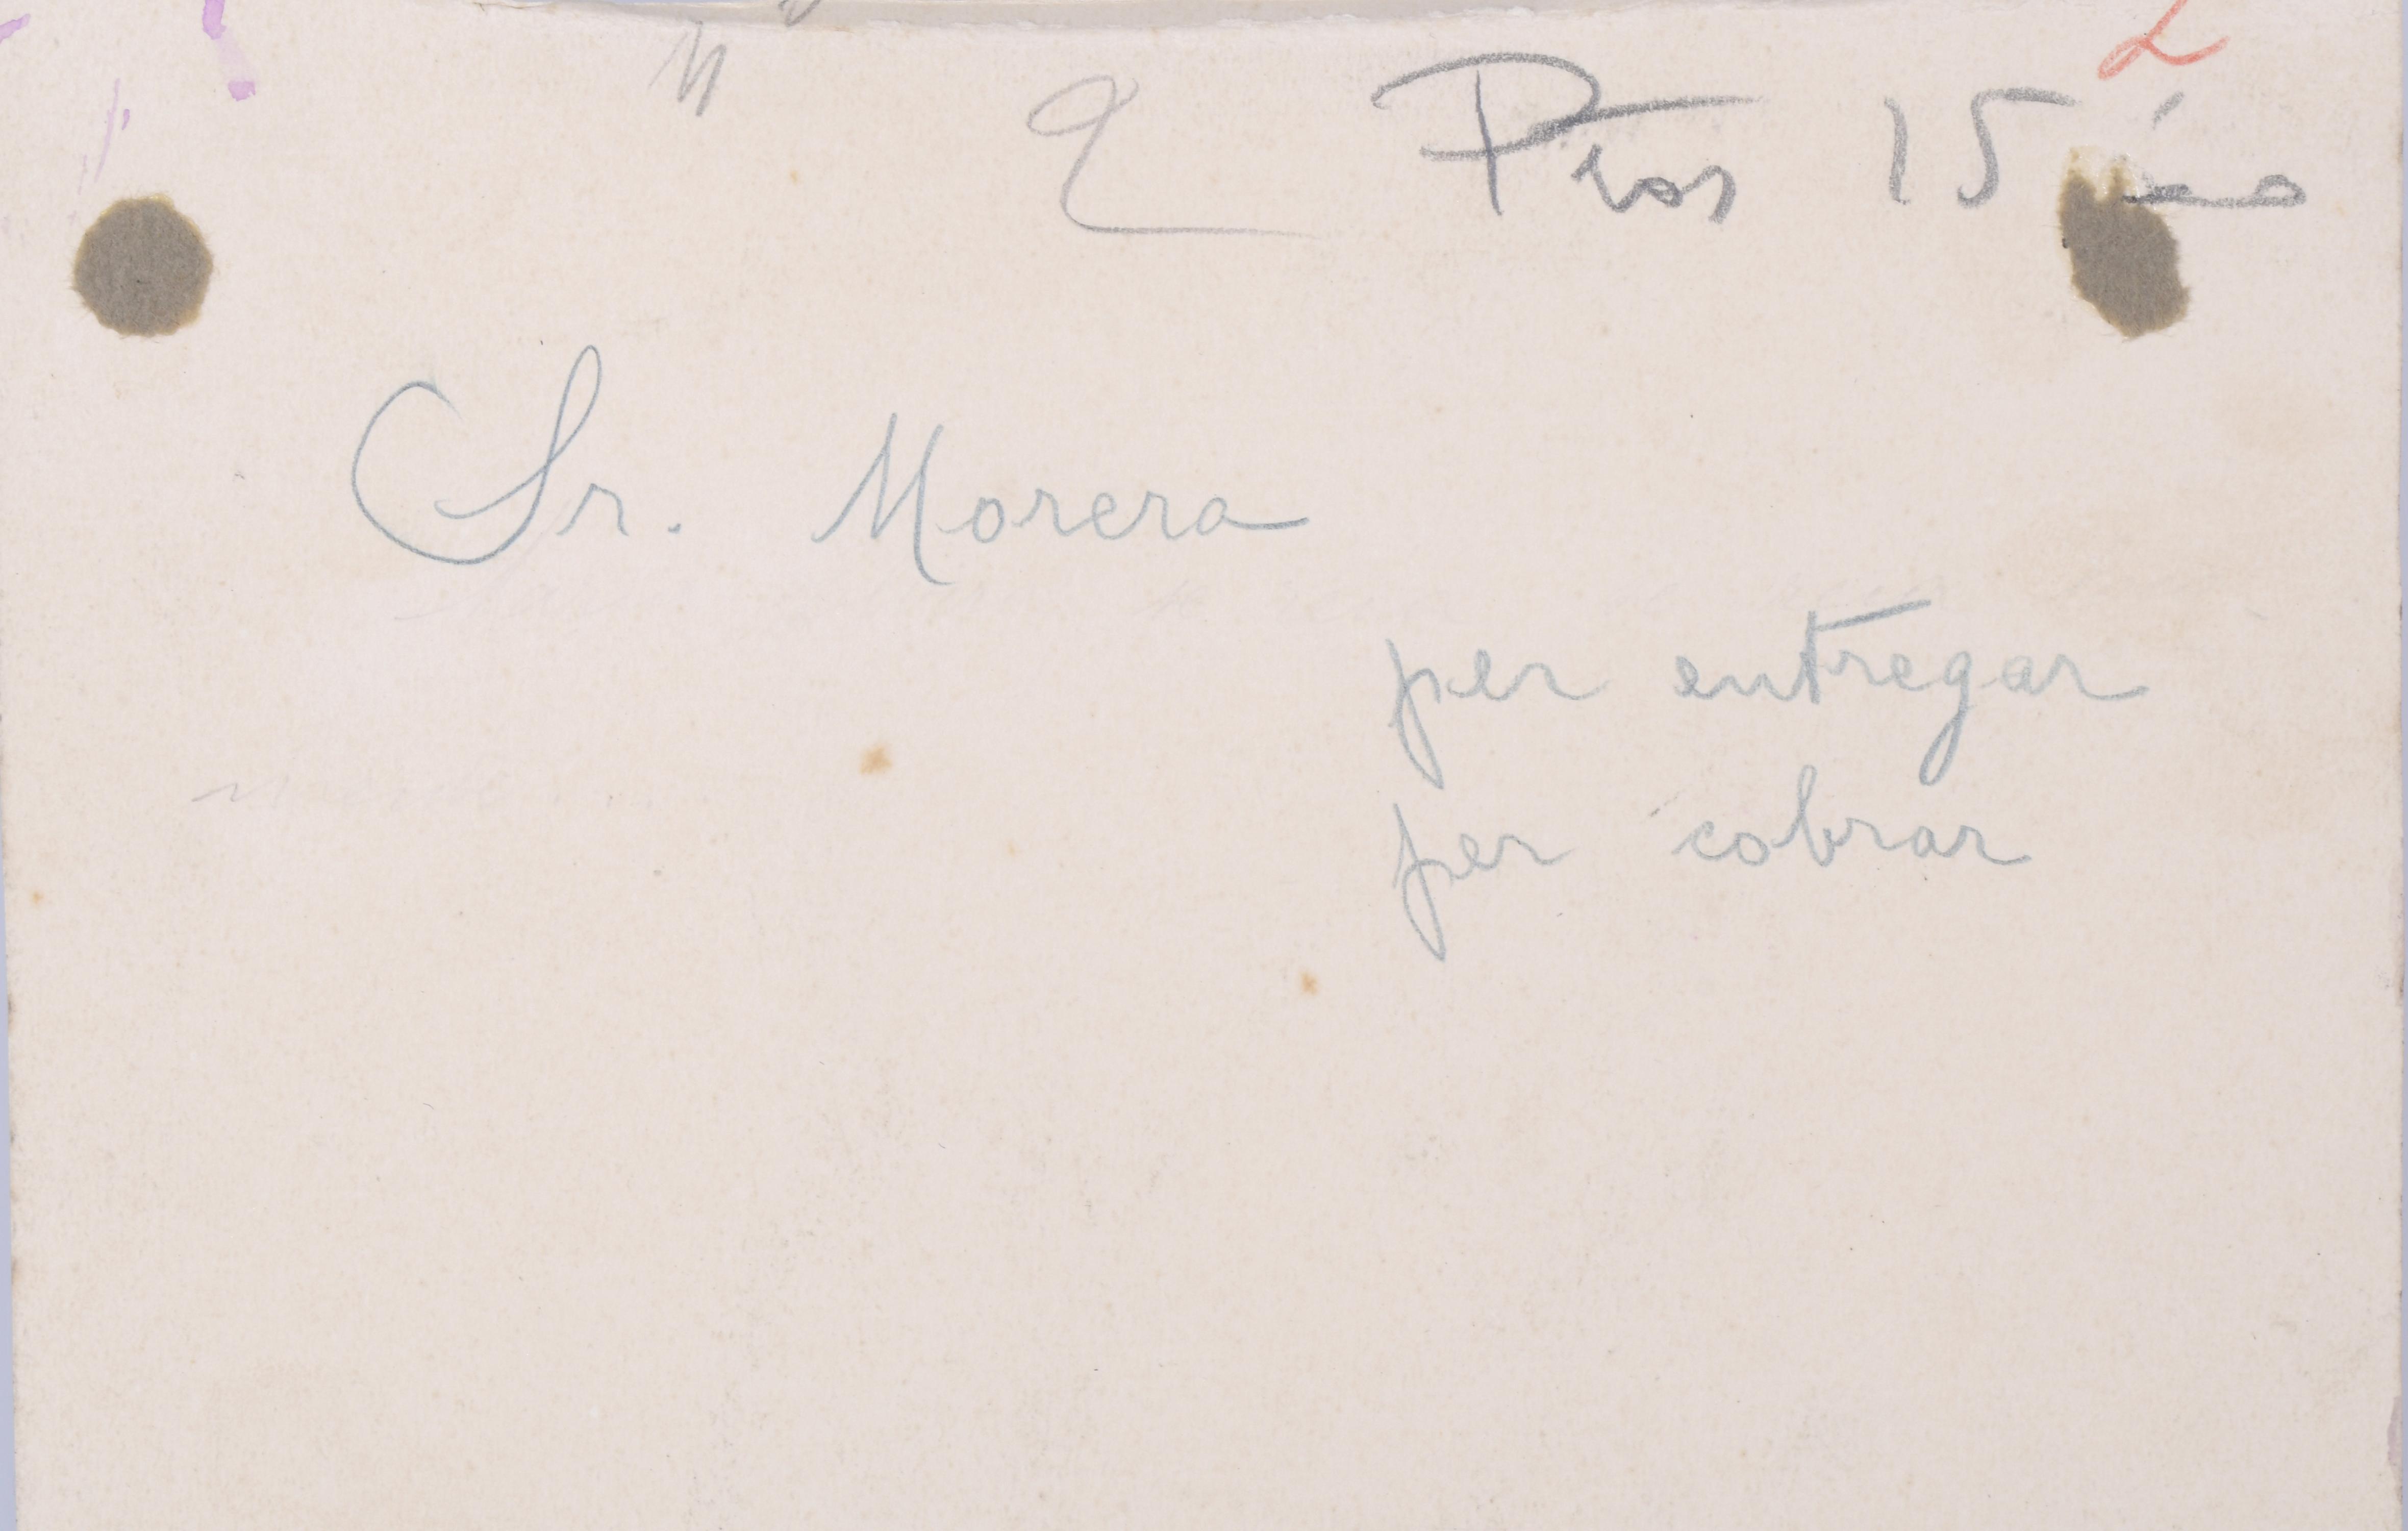 2 Pios 15
Sr. Morera
per entregar
per cobrar